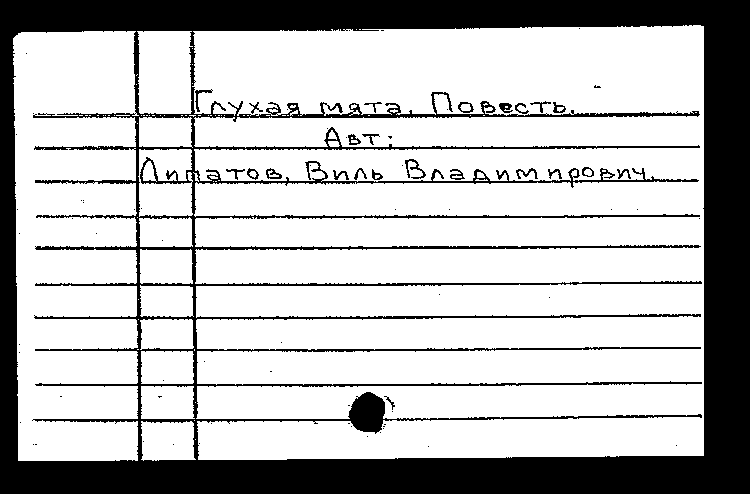 Глухая мята. Повесть.
Авт:
Липатов, Виль Владимирович.